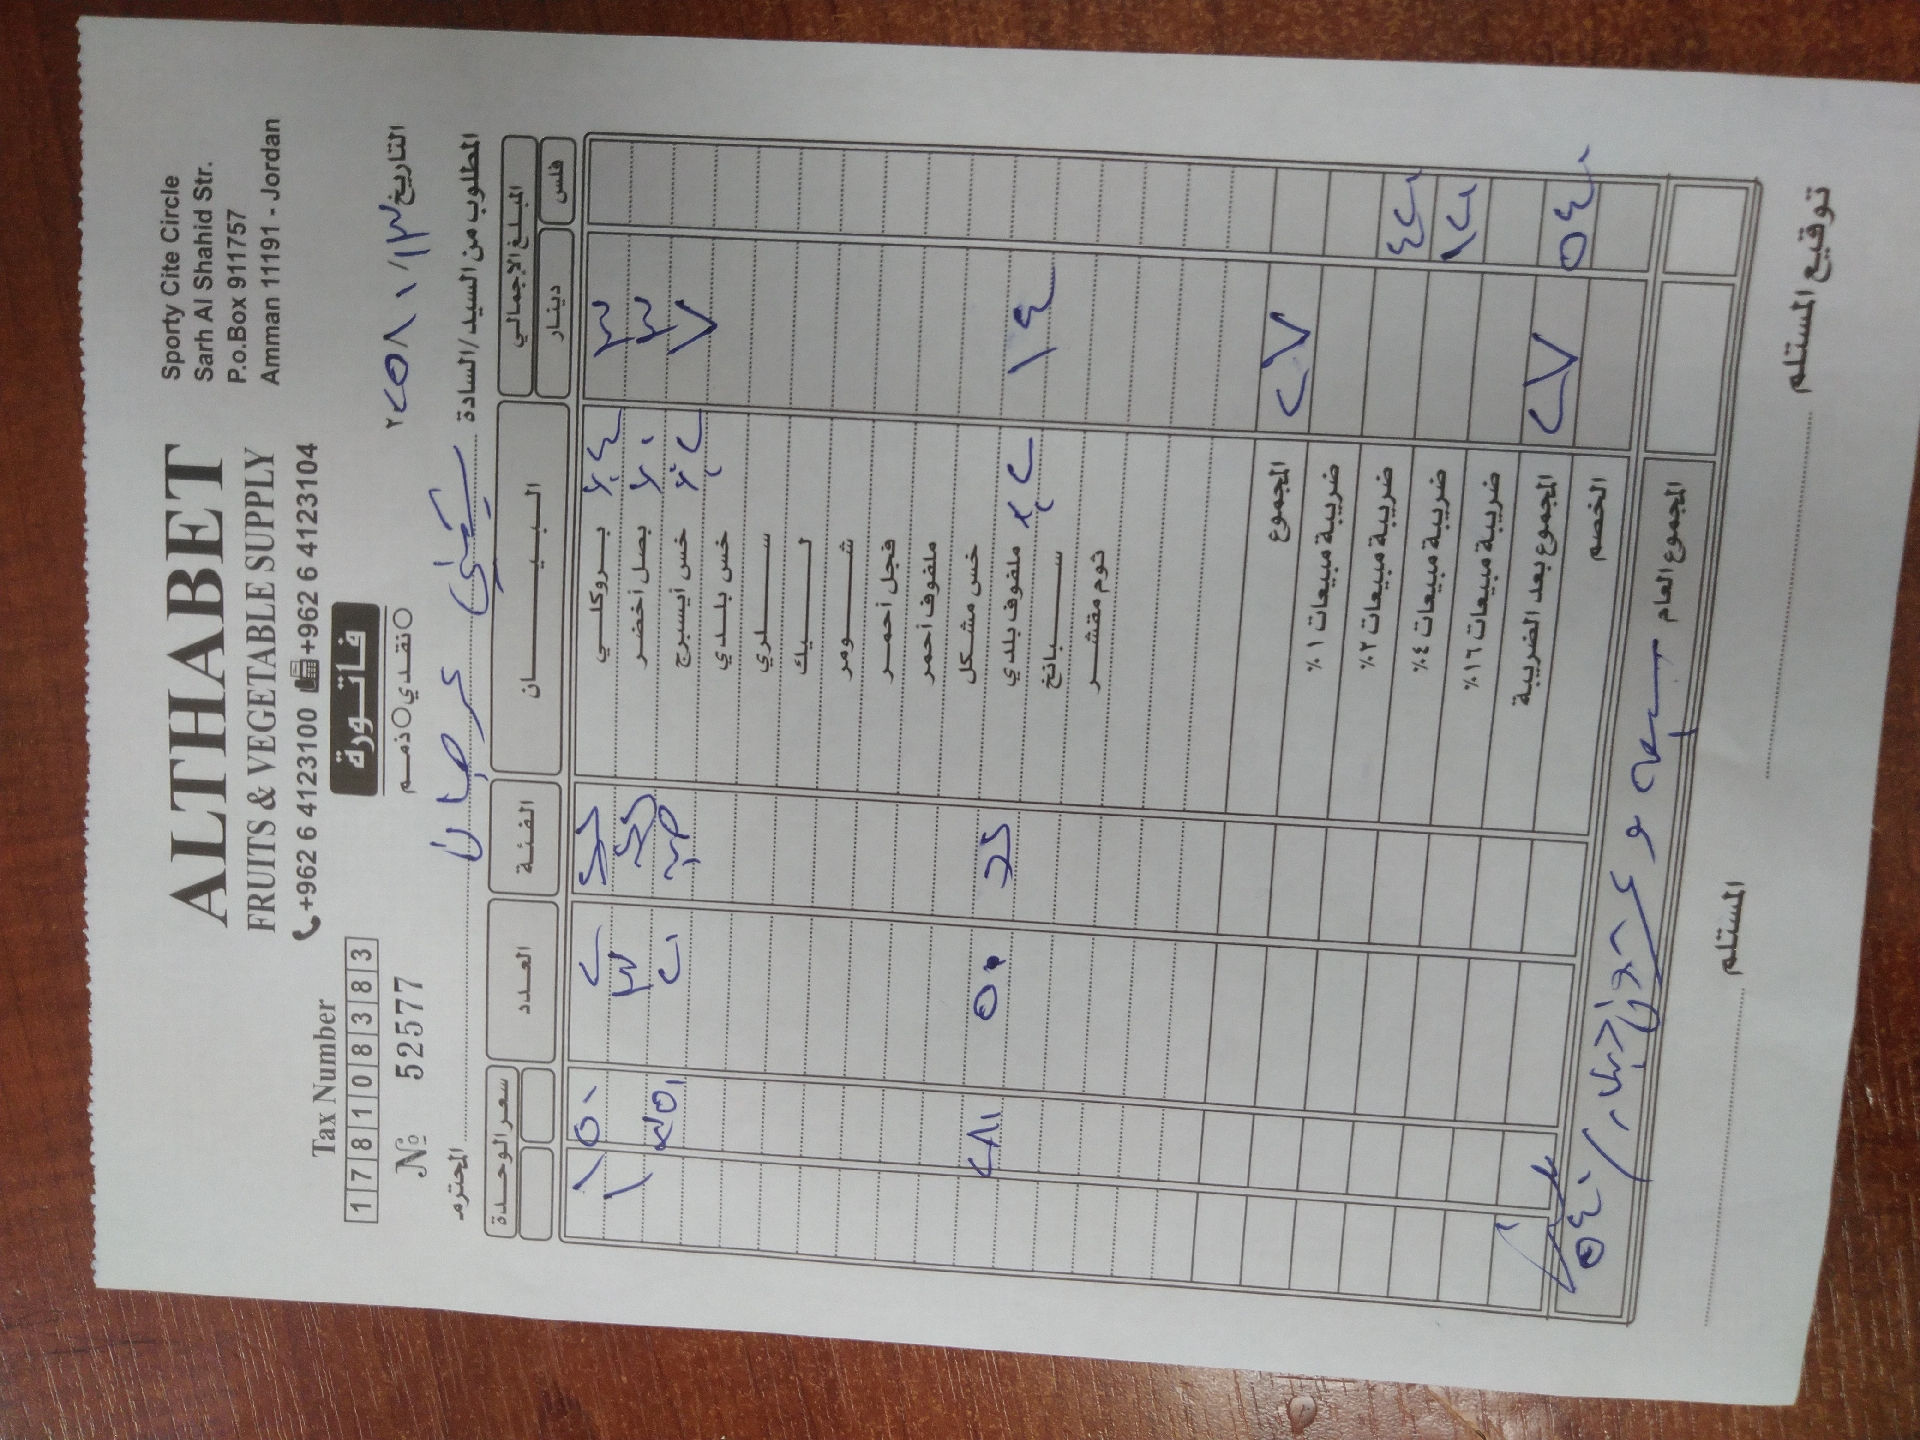 ALTHABET
FRUITS & VEGETABLE SUPPLY
+962 6 4123100 +962 6 4123104
Sporty Cite Circle
Sarh Al Shahid Str.
P.o.Box 911757
Amman 11191 - Jordan
Tax Number
178108383
فاتورة
№ 52577
نقدي ذمم
التاريخ
المطلوب من السيد/السادة
المحترم
سعر الوحدة العدد الفئة البيان المبلغ الإجمالي
دينار فلس
١ ٥٠ ٢ بروكلي ٪٤ ٣
١ ٣ بصل أخضر ٪٠ ٣
خس أيسبرج ٪٢ ٧
خس بلدي
سلري
ليك
شومر
فجل أحمر
ملفوف أحمر
خس مشكل
٢٨٠ ٥٠ ملفوف بلدي ٪٢ ١٤
سبانخ
ثوم مقشر
المجموع ٢٧
ضريبة مبيعات ١٪
ضريبة مبيعات ٢٪ ٤٢٠
ضريبة مبيعات ٤٪ ١٢٠
ضريبة مبيعات ١٦٪
المجموع بعد الضريبة ٢٧ ٥٤٠
الخصم
المجموع العام
سبعة وعشرون دينار / ٥٤٠
المستلم
توقيع المستلم